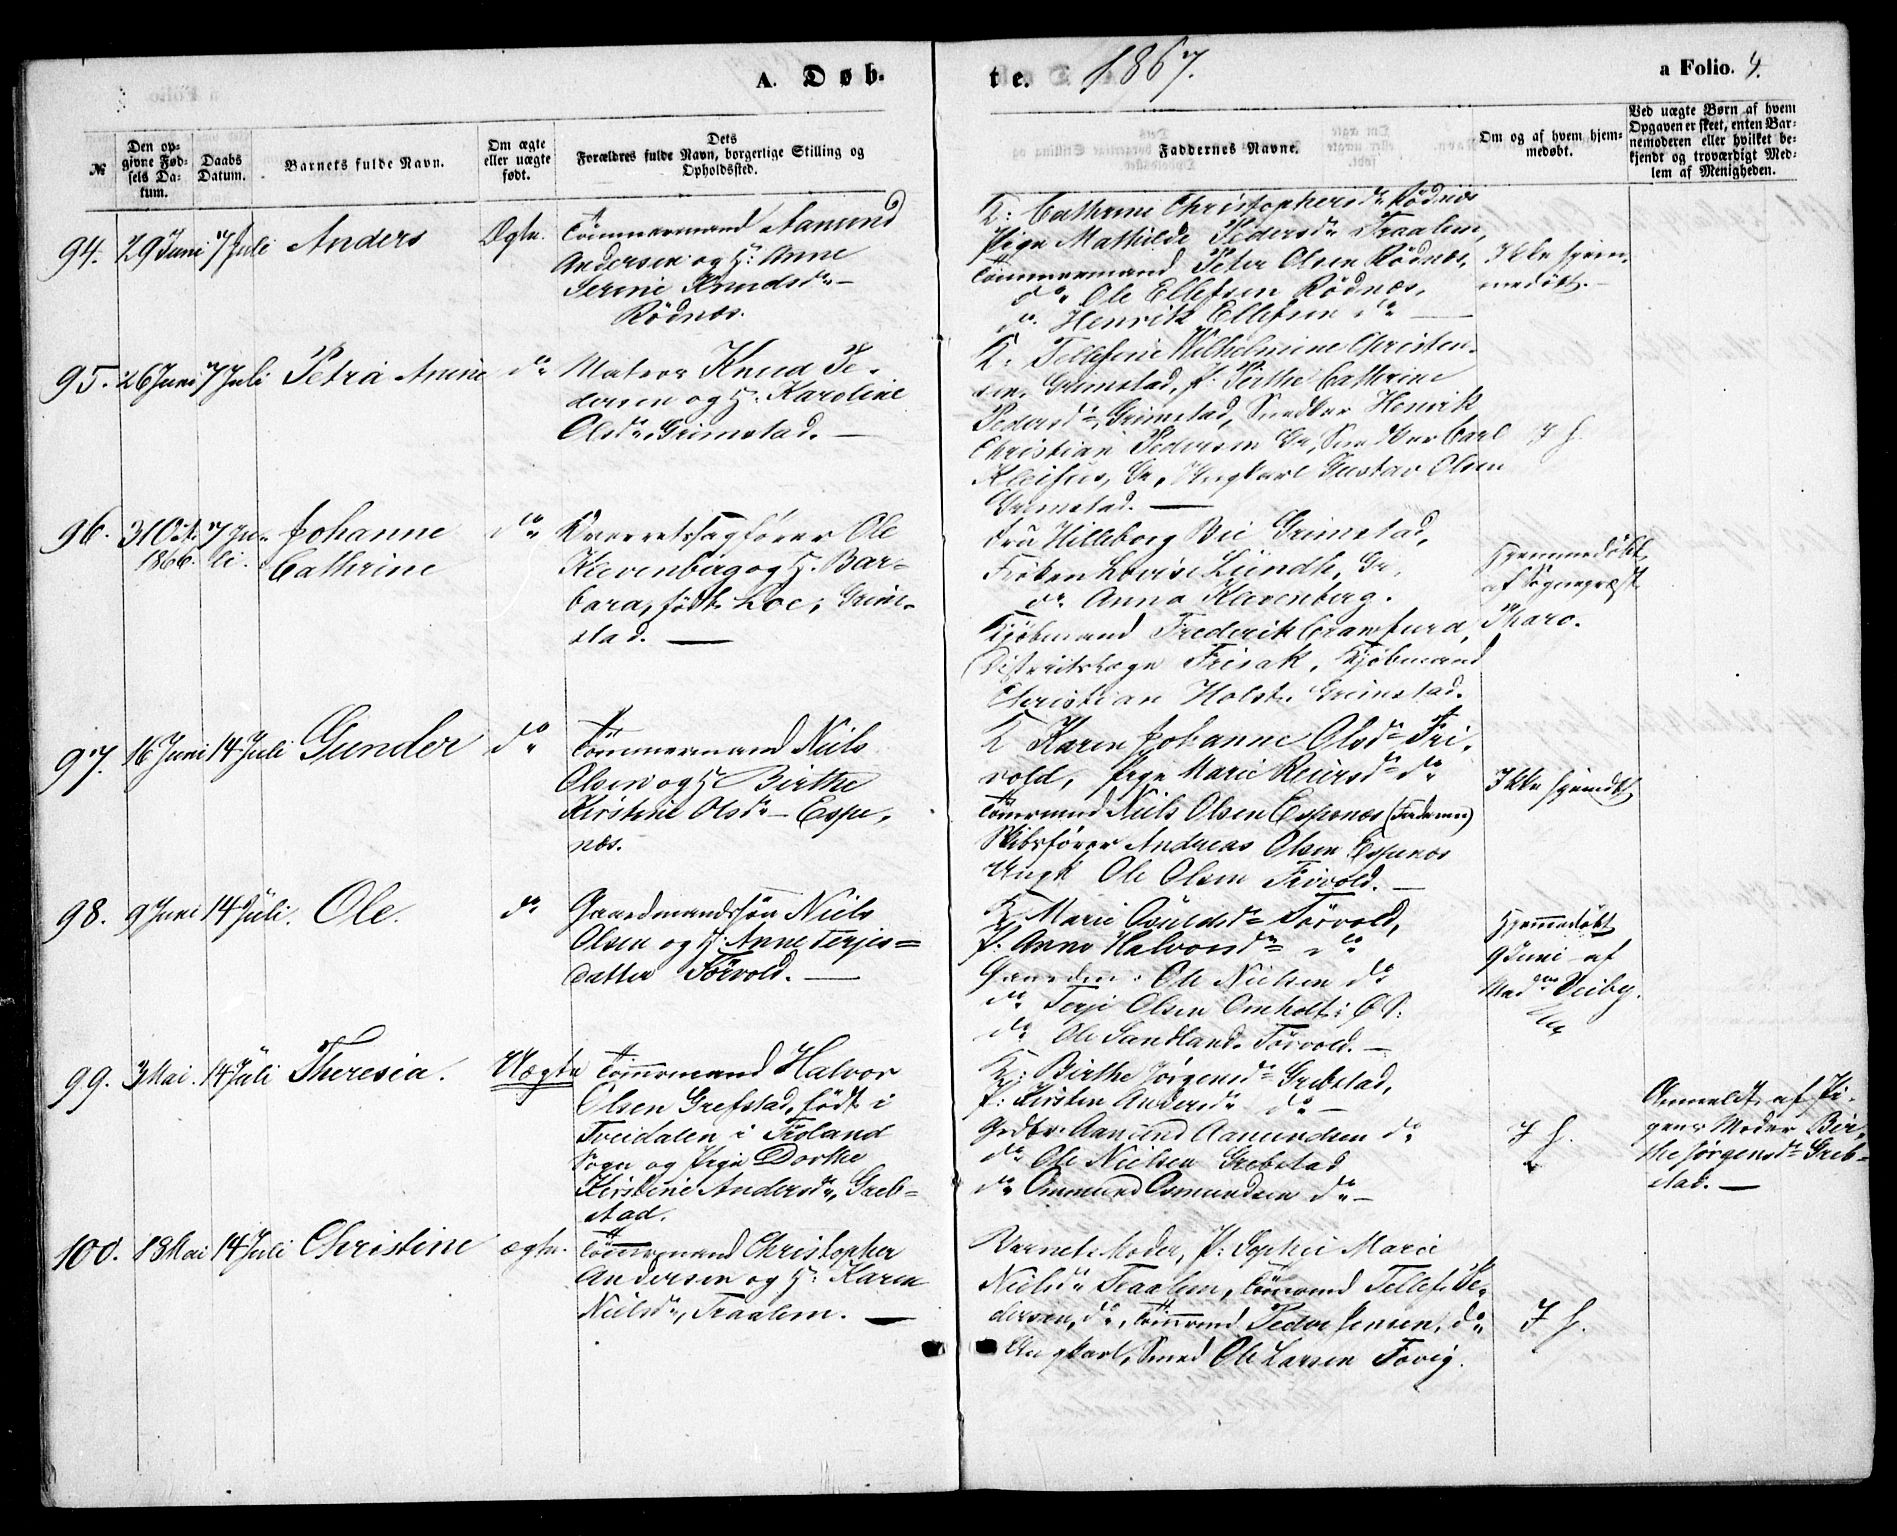 A. Døb-
te. 1867.
a Folio. 4.
№
Den op-
givne Fød-
sels Da-
tum.
Daabs
Datum.
Barnets fulde Navn.
Om ægte
eller uægte
født.
Dets
Forældres fulde Navn, borgerlige Stilling og
Opholdssted.
Faddernes Navne.
Om og af hvem hjem-
medøbt.
Ved uægte Børn af hvem
Opgaven er skeet, enten Bar-
nemoderen eller hvilket be-
kjendt og troværdigt Med-
lem af Menigheden.
94. 29 Juni 7 Juli Anders Ægte.
Tömmermand Aanund
Andersen og H: Anne
Serine Knudsdr
Rödnes.
K: Cathrine Christophersdr Rödnes
Pige Mathilde Pedersdr Fraalem,
Tömmermand Peter Olsen Rödnes,
do Ole Ellefsen Rödnes,
do Henrik Ellefsen do
Ikke hjem-
medöbt.
95. 26 Juni 7 Juli Petra Anine do
Matros Knud Pe-
dersen og H. Karoline
Olsdr, Grimstad.
K. Tellefine Wilhelmine Christen-
sen, Grimstad, P. Birthe Cathrine
Pedersdr, Grimstad, Snedker Henrik
Christian Pedersen Gr, Snedker Carl
Gr, Ungkarl Gustav Olsen
Grimstad.
I H.
96. 31 Oct. 1866. 7 Ju-
li.
Johanne
Cathrine
do
Overretssagförer Ole
Klevenberg og H. Bar-
bara, födt Loe, Grim-
stad.
Fru Hilleborg Bie Grimstad,
Fröken Lovise Lundh, Gr,
do Anna Klevenberg.
Kjöbmand Frederik Crawfurd,
Distriktslæge Frisak, Kjöbmand
Christian Holst, Grimstad.
Hjemmedöbt
af Sognepræst
Tharo.
97. 16 Juni 14 Juli Gunder do
Tömmermand Niels
Olsen og H Birthe
Kirstine Olsdr Espe-
næs.
K Karen Johanne Olsdr Fri-
vold, Pige Marie Reiersdr do
Tömrmand Niels Olsen Espenæs (Faderen)
Skibsförer Andreas Olsen Espenæs
Ungk Ole Olsen Frivold.
Ikke hjemdöbt
98. 9 Juni 14 Juli. Ole. do
Gaardmandssön Niels
Olsen og H: Anne Terjes-
datter Törvold.
K. Marie Törvold,
P. Anne Halvorsdr do
Gaardm: Ole Nielsen do
do Terje Olsen Omholt i Ø S:
do Ole Sandland Törvold.
Hjemmedöbt
9 Juni af
Mad Veiby.
99. 3 Mai. 14 Juli Theresia. Uægte
Tömrmand Halvor
Olsen Grefstad, födt i
Treidalen i Froland
Sogn og Pige Dorthe
Kirstine Andersdr, Greb-
stad.
K: Birthe Jörgensdr Grebstad,
P: Kirsten Andersdr do
Grdbr. Aanund Aanundsen do
do Ole Nielsen Grebstad
do Osmundsen do
I H.
Anmeldt af Pi-
gens Moder Bir-
the Jörgensdr Greb-
stad.
100. 18 Mai 14 Juli Christine ægte.
Tömrmand Christopher
Andersen og H: Karen
Nielsdr, Fraalem.
Barnets Moder, P: Sophie Marie
Nielsdr Fraalem, Tömrmd Tellef Pe-
dersen, do, Tömrmd Peder Jensen, do
Ungkarl, Smed Ole Larsen Fevig.
I H.